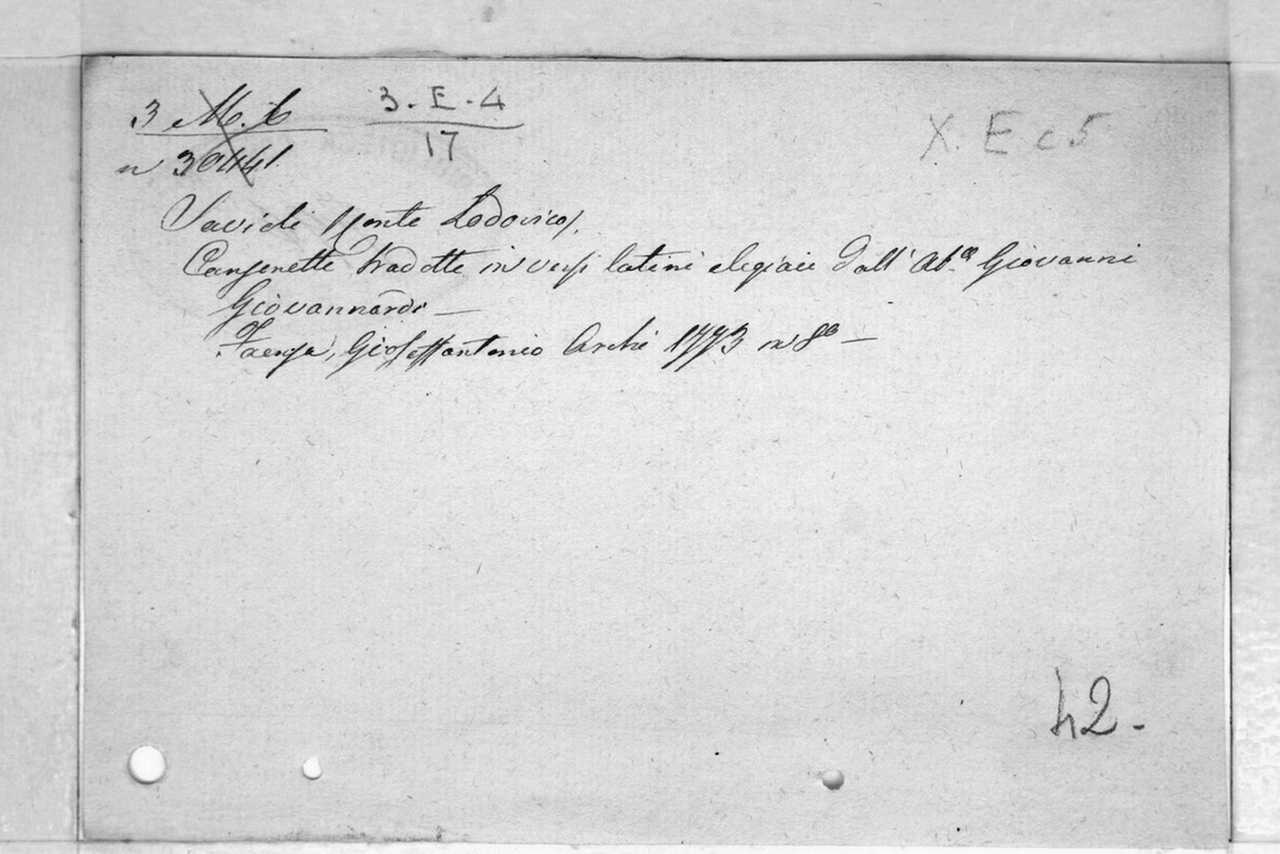 3 M. C 3. E. 4 X. E c 5
n 30441. 17
Savioli Conte Lodovico).
Canzonette tradotte in versi latini elegiaci dall' Ab.e Giovanni
Giovannardi —
Faenza, Gioseffantonio Archi 1773 in 8º —
42.